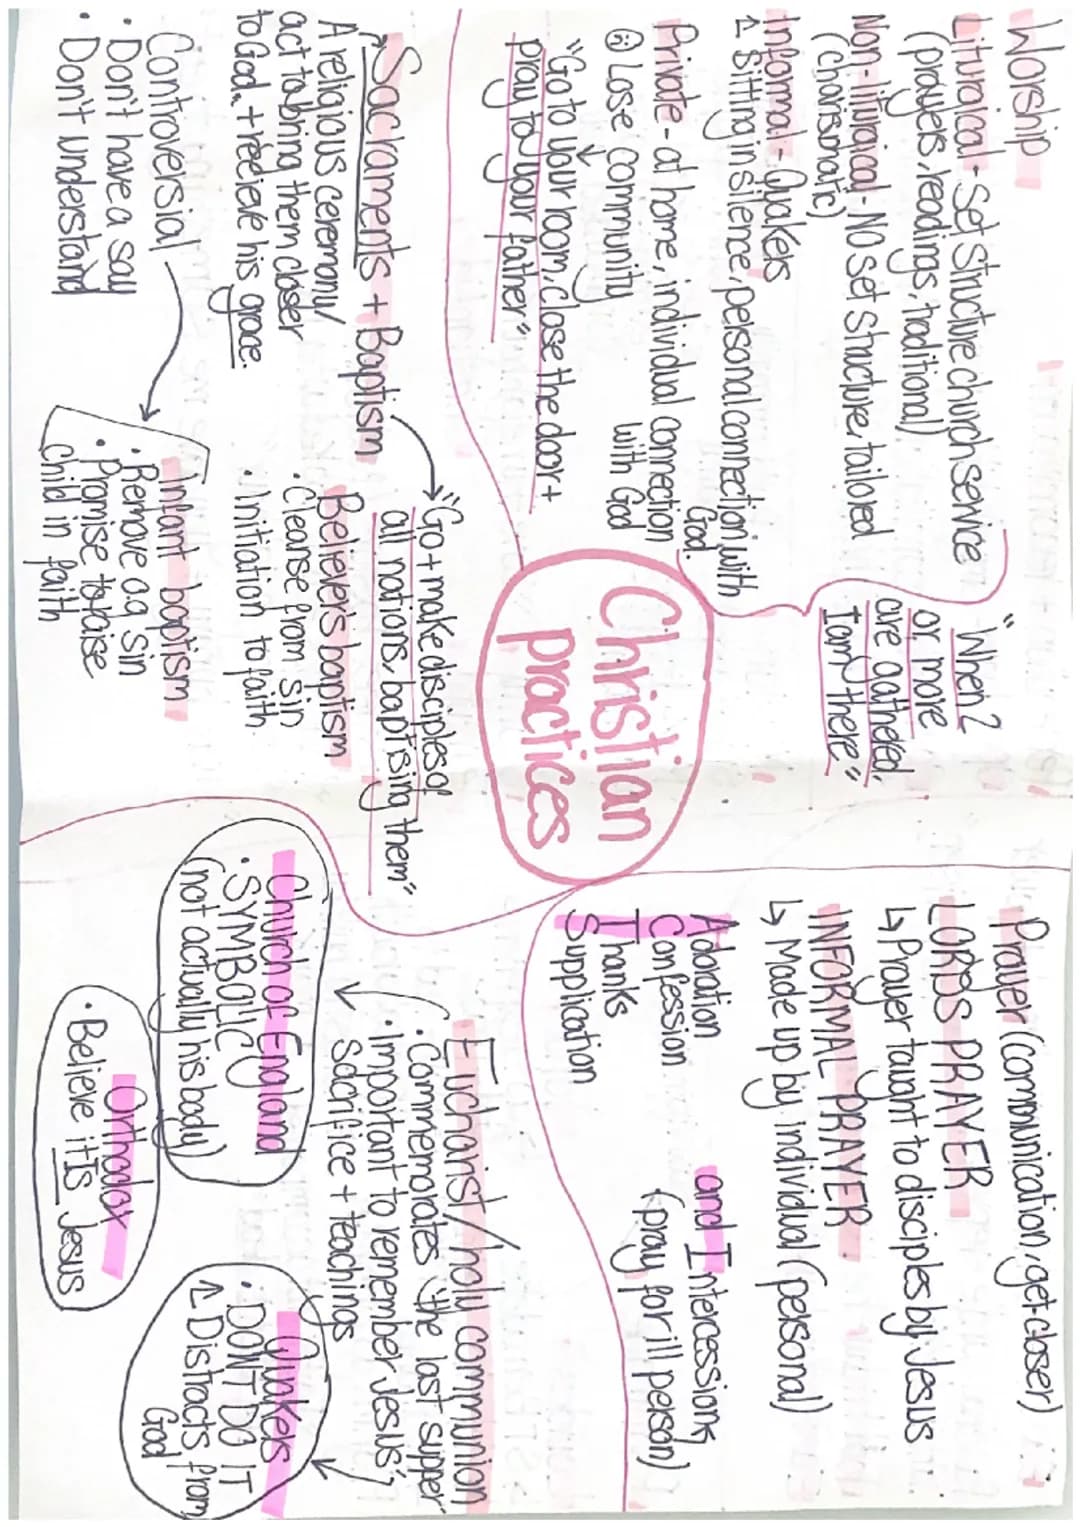 Christian
practices
Worship
Liturgical - Set structure church service
(prayers, readings, traditional)
Non-liturgical - No set structure, tailored
(charismatic)
Informal - Quakers
↳ sitting in silence, personal connection with
God.
Private - at home, individual connection
with God
☹ Lose community
"Go to your room, close the door +
pray to your father"
"When 2
or more
are gathered,
I am there"
Prayer (communication, get closer)
LORDS PRAYER
↳ Prayer taught to disciples by Jesus
INFORMAL PRAYER
↳ Made up by individual (personal)
Adoration
Confession
Thanks
Supplication
and Intercessions
(pray for ill person)
Sacraments + Baptism
A religious ceremony/
act to bring them closer
to God + recieve his grace.
Controversial
• Don't have a say
• Don't understand
"Go + make disciples of
all nations, baptising them"
Believers baptism
• Cleanse from sin
• Initiation to faith
Infant baptism
• Remove o.g sin
• Promise to raise
child in faith
Eucharist/holy communion
• Commemorates 'the last supper'
• Important to remember Jesus'
sacrifice + teachings
Church of England
• SYMBOLIC
(not actually his body)
Orthodox
• Believe it IS Jesus
Quakers
• DON'T DO IT
↳ Distracts from
God